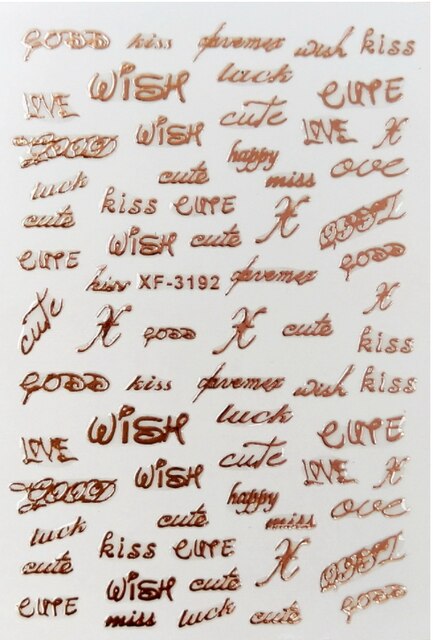 GODD kiss davemex wish kiss
WISH luck CUTE
LOVE WISH cute LOVE X
GOOD happy ove
luck cute miss
kiss CUTE X
cute WISH cute GODD
CUTE kiss XF-3192 davemex
X
cute X GODD X cute kiss
GODD kiss davemex wish kiss
WISH luck CUTE
LOVE WISH cute LOVE X
GOOD happy ove
luck cute miss
kiss CUTE X
cute WISH cute GODD
CUTE miss luck cute